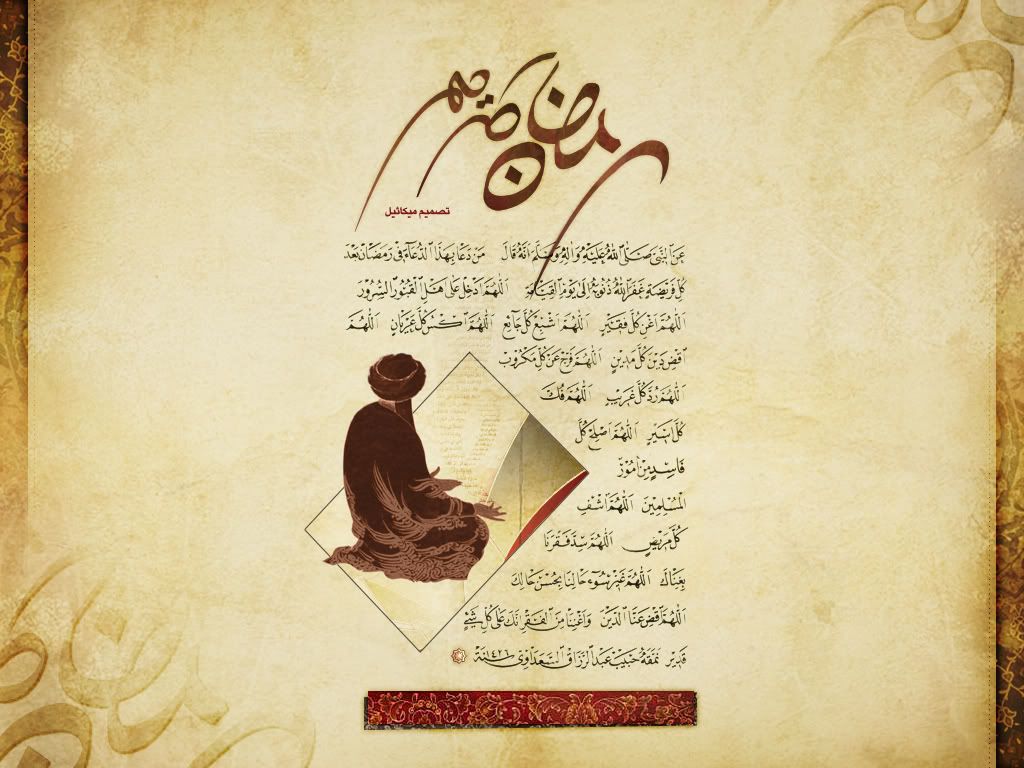 رمضان كريم
تصميم ميكائيل
عَنِ النَّبِيِّ صَلَّى اللّٰهُ عَلَيْهِ وَاٰلِهِ وَسَلَّمَ اَنَّهُ قَالَ مَنْ دَعَا بِهٰذَا الدُّعَاءِ فِي رَمَضَانَ بَعْدَ
كُلِّ فَرِيضَةٍ غَفَرَ اللّٰهُ ذُنُوبَهُ اِلَى يَوْمِ الْقِيَامَةِ اَللّٰهُمَّ اَدْخِلْ عَلَى اَهْلِ الْقُبُورِ السُّرُورَ
اَللّٰهُمَّ اَغْنِ كُلَّ فَقِيرٍ اَللّٰهُمَّ اَشْبِعْ كُلَّ جَائِعٍ اَللّٰهُمَّ اكْسُ كُلَّ عُرْيَانٍ اَللّٰهُمَّ
اقْضِ دَيْنَ كُلِّ مَدِينٍ اَللّٰهُمَّ فَرِّجْ عَنْ كُلِّ مَكْرُوبٍ
اَللّٰهُمَّ رُدَّ كُلَّ غَرِيبٍ اَللّٰهُمَّ فُكَّ
كُلَّ اَسِيرٍ اَللّٰهُمَّ اَصْلِحْ كُلَّ
فَاسِدٍ مِنْ اُمُورِ
الْمُسْلِمِينَ اَللّٰهُمَّ اشْفِ
كُلَّ مَرِيضٍ اَللّٰهُمَّ سُدَّ فَقْرَنَا
بِغِنَاكَ اَللّٰهُمَّ غَيِّرْ سُوءَ حَالِنَا بِحُسْنِ حَالِكَ
اَللّٰهُمَّ اقْضِ عَنَّا الدَّيْنَ وَاَغْنِنَا مِنَ الْفَقْرِ اِنَّكَ عَلَى كُلِّ شَيْءٍ
قَدِيرٌ نَمَّقَهُ حَبِيب عَبْدالرَّزَّاق السَّعْدَاوِي سَنَة ١٤٢٦